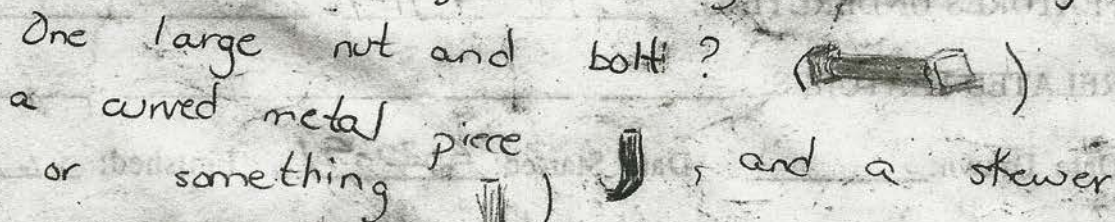 One large nut and bolt? ( )
a curved metal piece , and a skewer
or something )